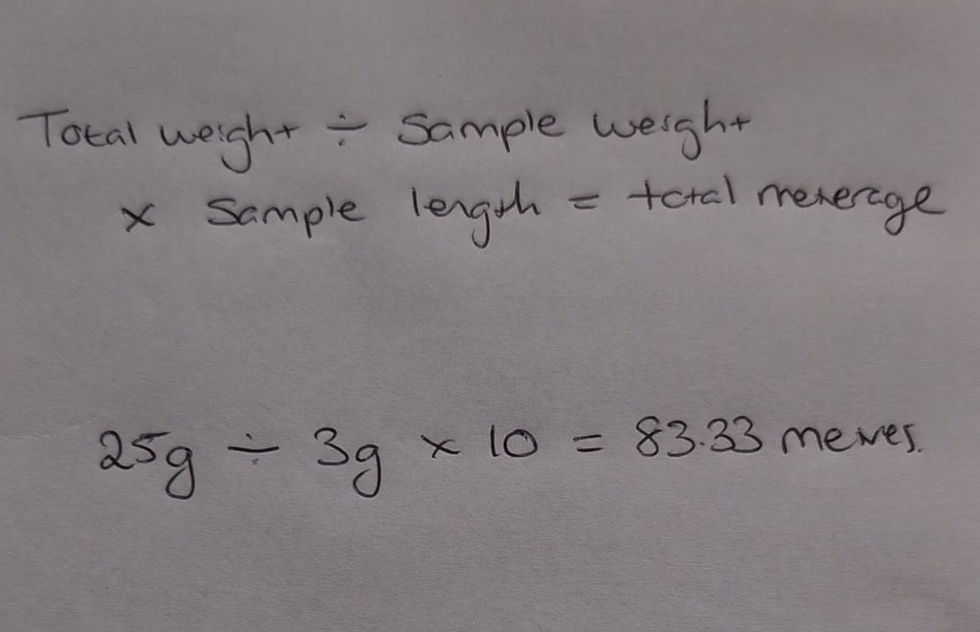 Total weight ÷ Sample weight
x Sample length = total meterage
25g ÷ 3g x 10 = 83.33 metres.